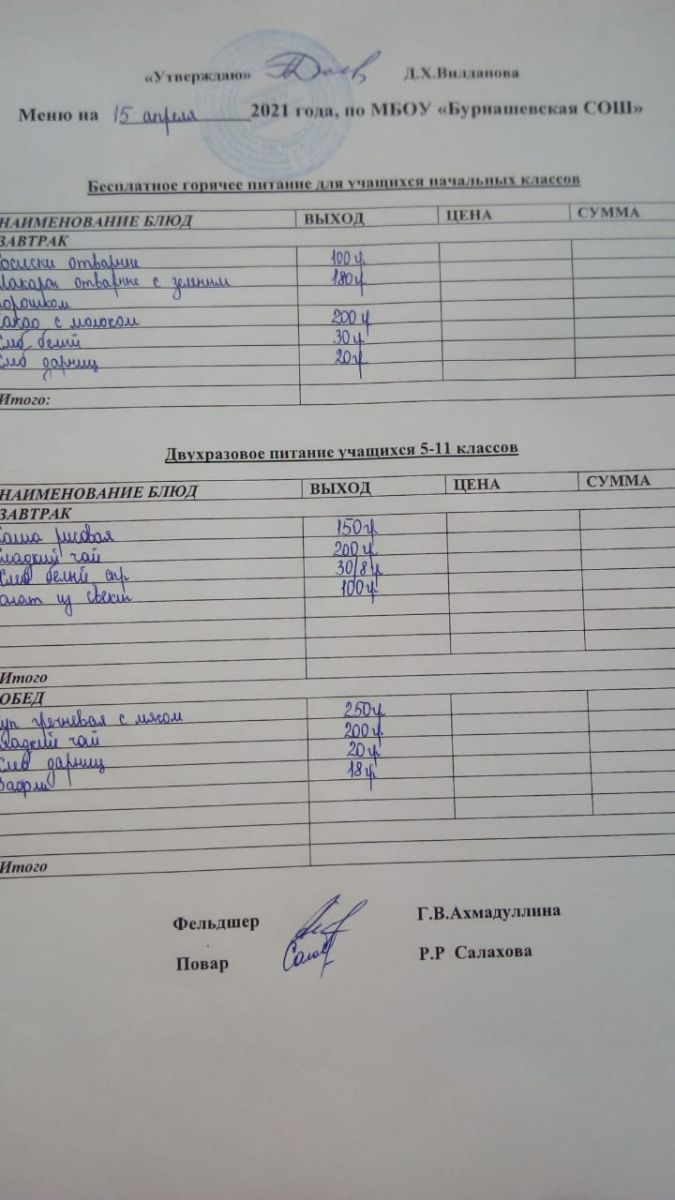 «Утверждаю» Д.Х.Вилданова
Меню на 15 апреля 2021 года, по МБОУ «Бурнашевская СОШ»
Бесплатное горячее питание для учащихся начальных классов
НАИМЕНОВАНИЕ БЛЮД ВЫХОД ЦЕНА СУММА
ЗАВТРАК
осиски отварные 100г
Макарон отварные с зеленым 180г
орошком
акао с молоком 200г
леб белый 30г
леб дарниц 20г
Итого:
Двухразовое питание учащихся 5-11 классов
НАИМЕНОВАНИЕ БЛЮД ВЫХОД ЦЕНА СУММА
ЗАВТРАК
Каша рисовая 150г
ладкий чай 200г
Хлеб белый сыр 30/8г
алат из свеклы 100г
Итого
ОБЕД
уп гречневая с мясом 250г
ладкий чай 200г
Хлеб дарниц 20г
Вафли 18г
Итого
Фельдшер Г.В.Ахмадуллина
Повар Р.Р Салахова